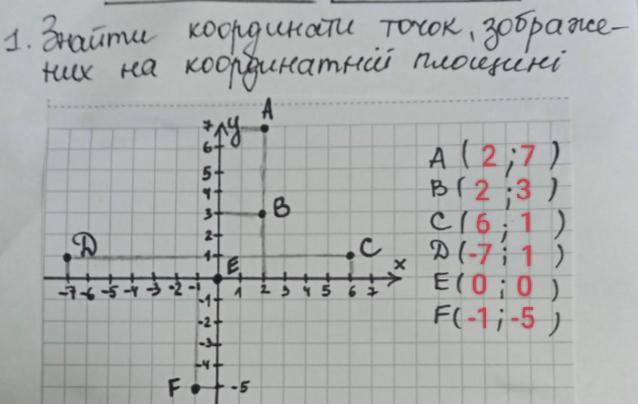 1. Знайти координати точок, зображе-
них на координатній площині
A
7 y
6
5
4
3 B
2
D 1 C
E x
-7 -6 -5 -4 -3 -2 -1 0 1 2 3 4 5 6 7
-1
-2
-3
-4
F -5
A (2;7)
B (2;3)
C (6;1)
D (-7;1)
E (0;0)
F (-1;-5)